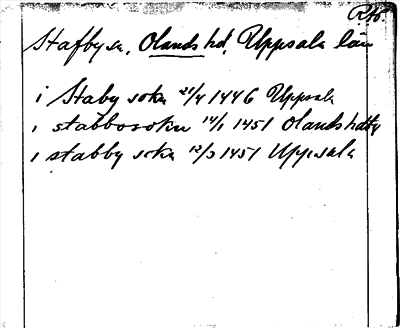 RHP.
Stafby sn, Olands hd, Uppsala län
i Staby sokn 21/4 1446 Uppsala
i stabbosokn 14/1 1451 Olandshdbg
i stabby sokn 12/3 1451 Uppsala